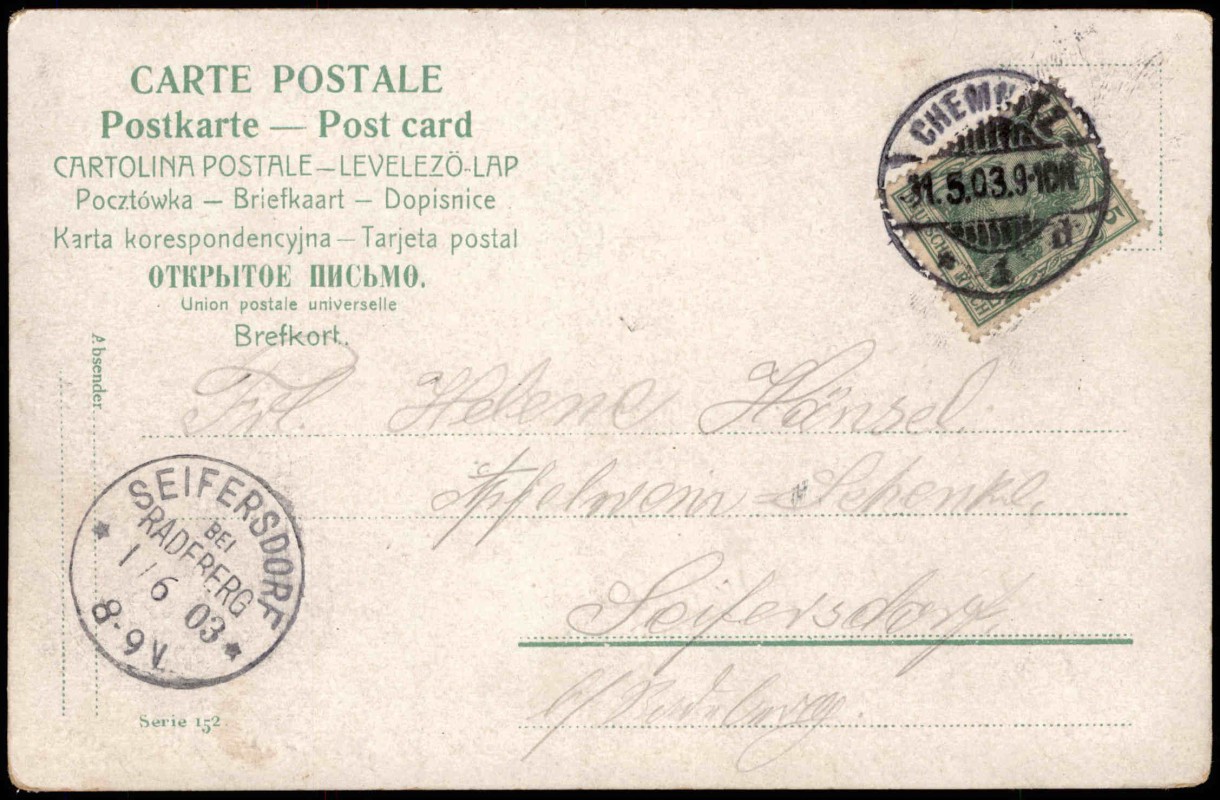 CARTE POSTALE
Postkarte — Post card
CARTOLINA POSTALE – LEVELEZÖ-LAP
Pocztówka — Briefkaart — Dopisnice
Karta korespondencyjna — Tarjeta postal
ОТКРЫТОЕ ПИСЬМО.
Union postale universelle
Brefkort.
CHEMNITZ
31.5.03.9-10N
* 1 d
DEUTSCHES REICH
5
Absender
Frl. Helene Hänsel.
Apfelwein-Schenke,
Seifersdorf,
b/ Radeberg.
SEIFERSDORF
BEI
RADEBERG
1/6 03
8-9 V
Serie 152